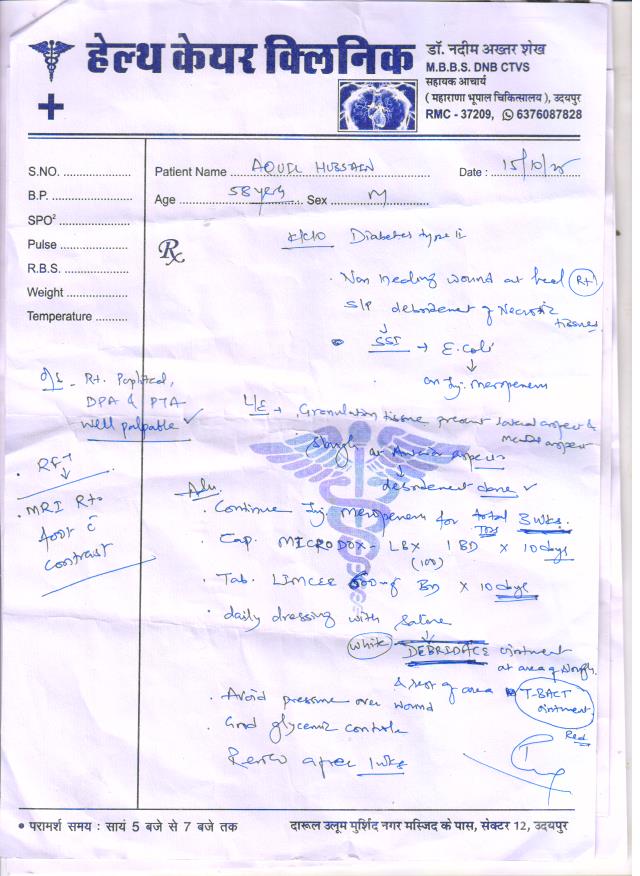 हेल्थ केयर क्लिनिक
डॉ. नदीम अख्तर शेख
M.B.B.S. DNB CTVS
सहायक आचार्य
( महाराणा भूपाल चिकित्सालय ), उदयपुर
RMC - 37209, 6376087828
S.NO. ....................
Patient Name AQUIL HUSSAIN Date : 15/10/25
B.P. ....................
Age 58 yrs Sex M
SPO² ....................
Pulse ....................
R.B.S. ....................
Weight ....................
Temperature ..........
Rx
K/C/O Diabetes type ii
. Non healing wound at heel (Rt)
S/P debridement of Necrotic tissues
SSI → E. coli
on Inj. meropenem
O/E - Rt. Popliteal,
DPA & PTA
well palpable ✓
L/E → Granulation tissue present lateral aspect & medial aspect
Slough at aspect
debridement done ✓
. RFT
. MRI Rt.
foot c̄
contrast
Adv.
. Continue Inj. meropenem for total 3 wks.
TDS
. Cap. MICRODOX - LBX 1 BD x 10 days
(100)
. Tab. LIMCEE 500mg BD x 10 days
. daily dressing with Saline
(White) DEBRIDACE ointment
at area of slough
& rest of area T-BACT
ointment
Red
. Avoid pressure over wound
. Good glycemic controle
Review after 1 wks
• परामर्श समय : सायं 5 बजे से 7 बजे तक
दारूल उलूम मुर्शिद नगर मस्जिद के पास, सेक्टर 12, उदयपुर